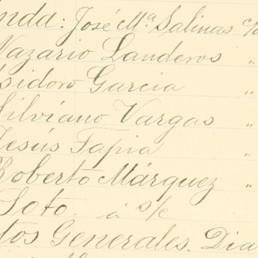 nda: José Mª Salinas c/
Nazario Landeros "
sidoro Garcia "
Silviano Vargas "
Jesús Tapia "
Roberto Márquez "
Soto á s/c
tos Generales. Dia